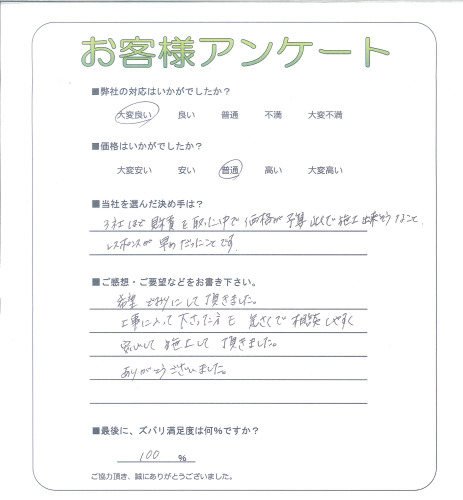 お客様アンケート
■弊社の対応はいかがでしたか?
大変良い 良い 普通 不満 大変不満
■価格はいかがでしたか?
大変安い 安い 普通 高い 大変高い
■当社を選んだ決め手は?
3社ほど見積を取った中で価格が予算以下で施工出来そうなこと
レスポンスが早めだったことです
■ご感想・ご要望などをお書き下さい。
希望 にして頂きました。
工事に入って下さった方も 気さくで 相談しやすく
安心して施工して頂きました。
ありがとうございました。
■最後に、ズバリ満足度は何%ですか?
100 %
ご協力頂き、誠にありがとうございました。